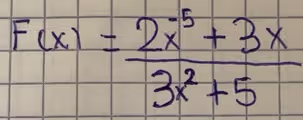 F(x) = (2x⁻⁵ + 3x)/(3x² + 5)